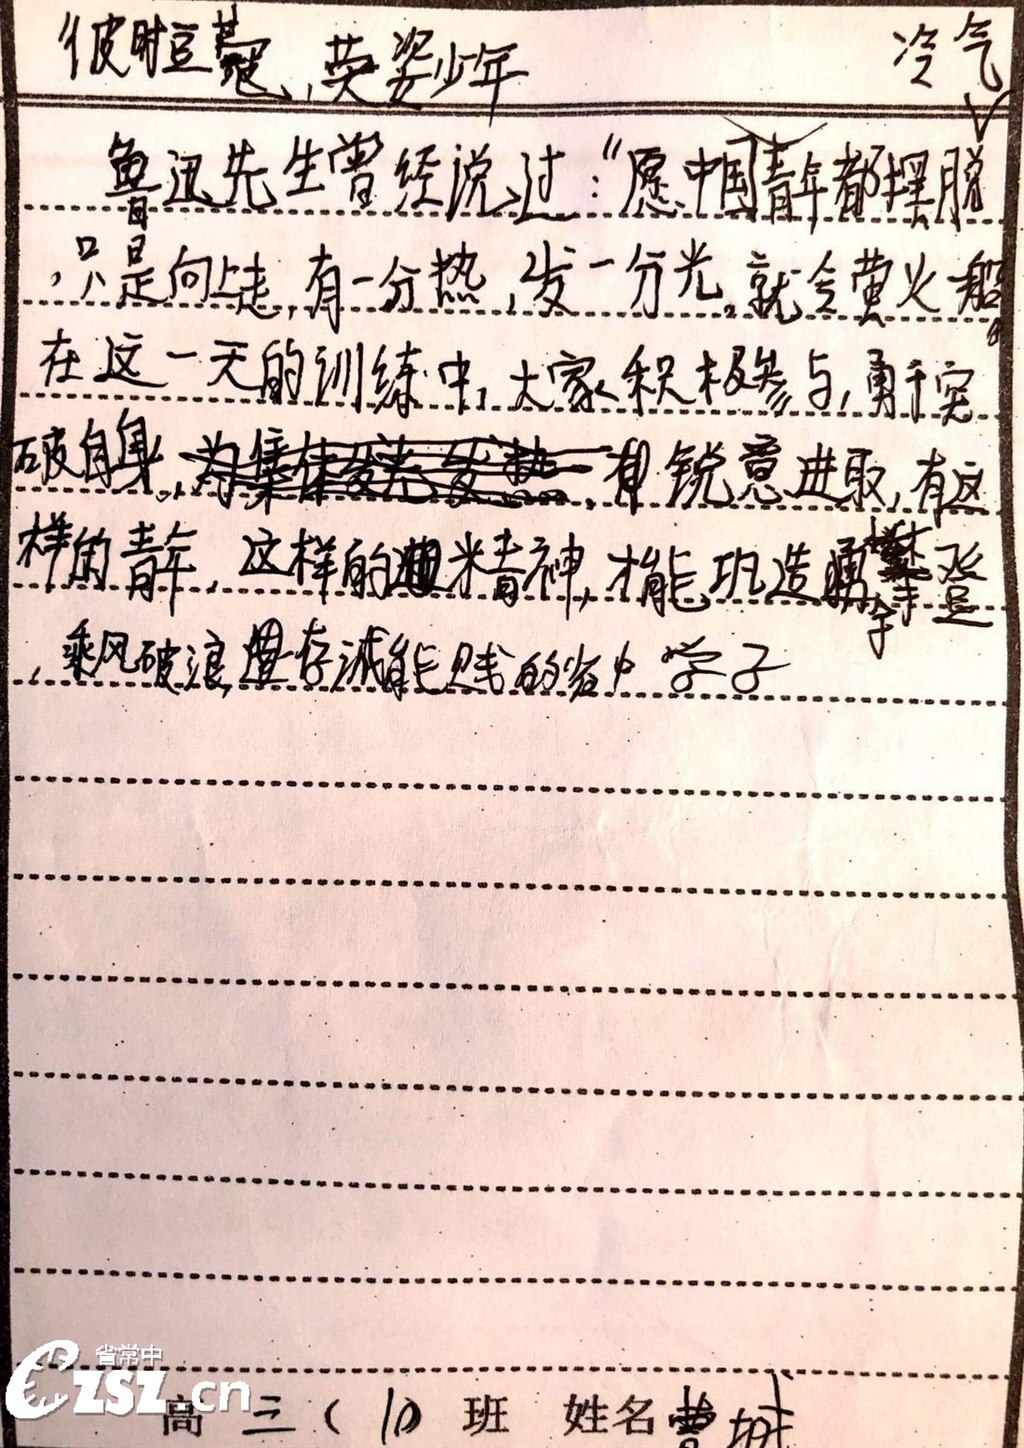 彼时豆蔻,英姿少年
冷气
鲁迅先生曾经说过:“愿中国青年都摆脱
,只是向上走,有一分热,发一分光,就令萤火一般。
在这一天的训练中,大家积极参与,勇于突
破自身,为集体发光发热,有锐意进取,有这
样的青年,这样的精神,才能巩造勇攀登
,乘风破浪,存诚能贱的省中学子
省常中
CZSZ.cn
高三(10)班 姓名曹城